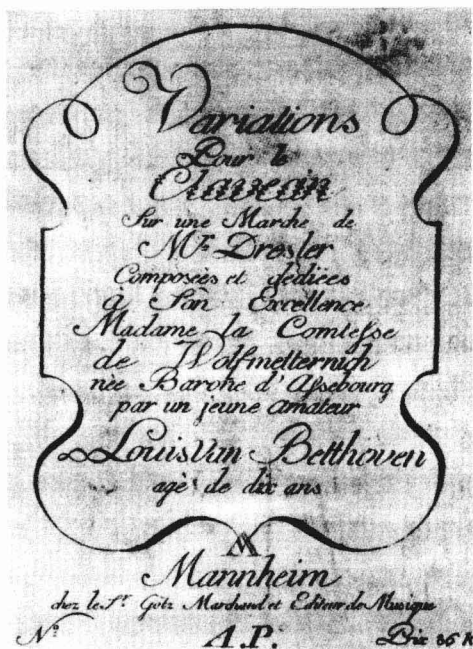 Variations
Pour le
Clavecin
Sur une Marche de
Mr. Dresler
Composées et dediées
à Son Excellence
Madame la Comtesse
de Wolfmetternich
née Barone d'Assebourg
par un jeune amateur
Louis Van Betthoven
agè de dix ans
Mannheim
chez le Sr. Götz Marchand et Editeur de Musique
No. A.P. Prix 36 K